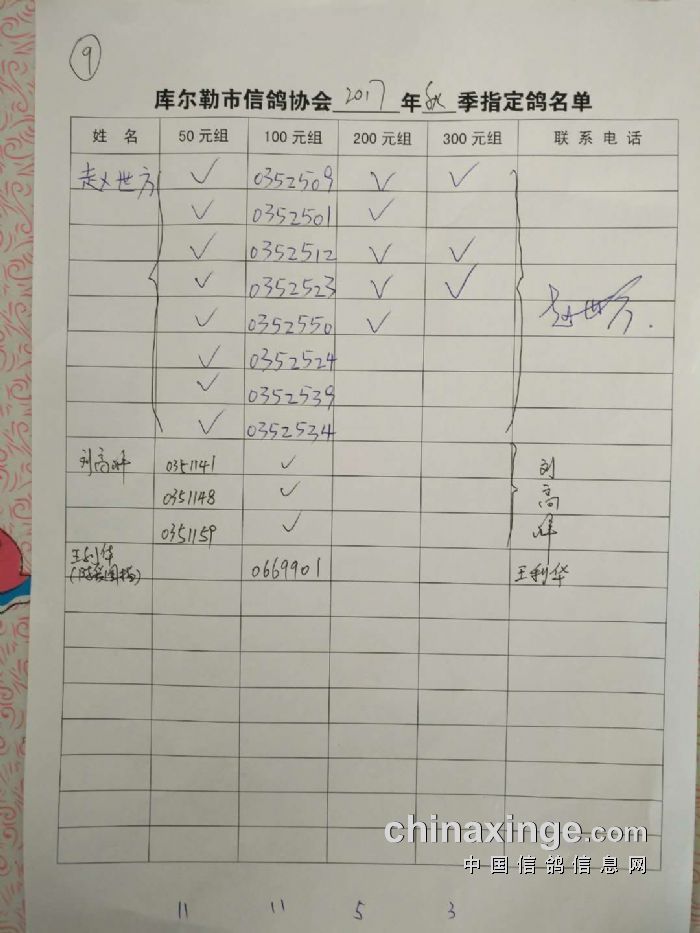 9
库尔勒市信鸽协会 2017 年 秋 季指定鸽名单
姓 名 50元组 100元组 200元组 300元组 联系电话
赵世方 ✓ 0352509 ✓ ✓
✓ 0352501 ✓
✓ 0352512 ✓ ✓
✓ 0352523 ✓ ✓ 赵世方.
✓ 0352550 ✓
✓ 0352524
✓ 0352539
✓ 0352534
刘高峰 0351141 ✓ 刘
0351148 ✓ 高
0351159 ✓ 峰
王利华 0669901 王利华
chinaxinge.com
中国信鸽信息网
11 11 5 3